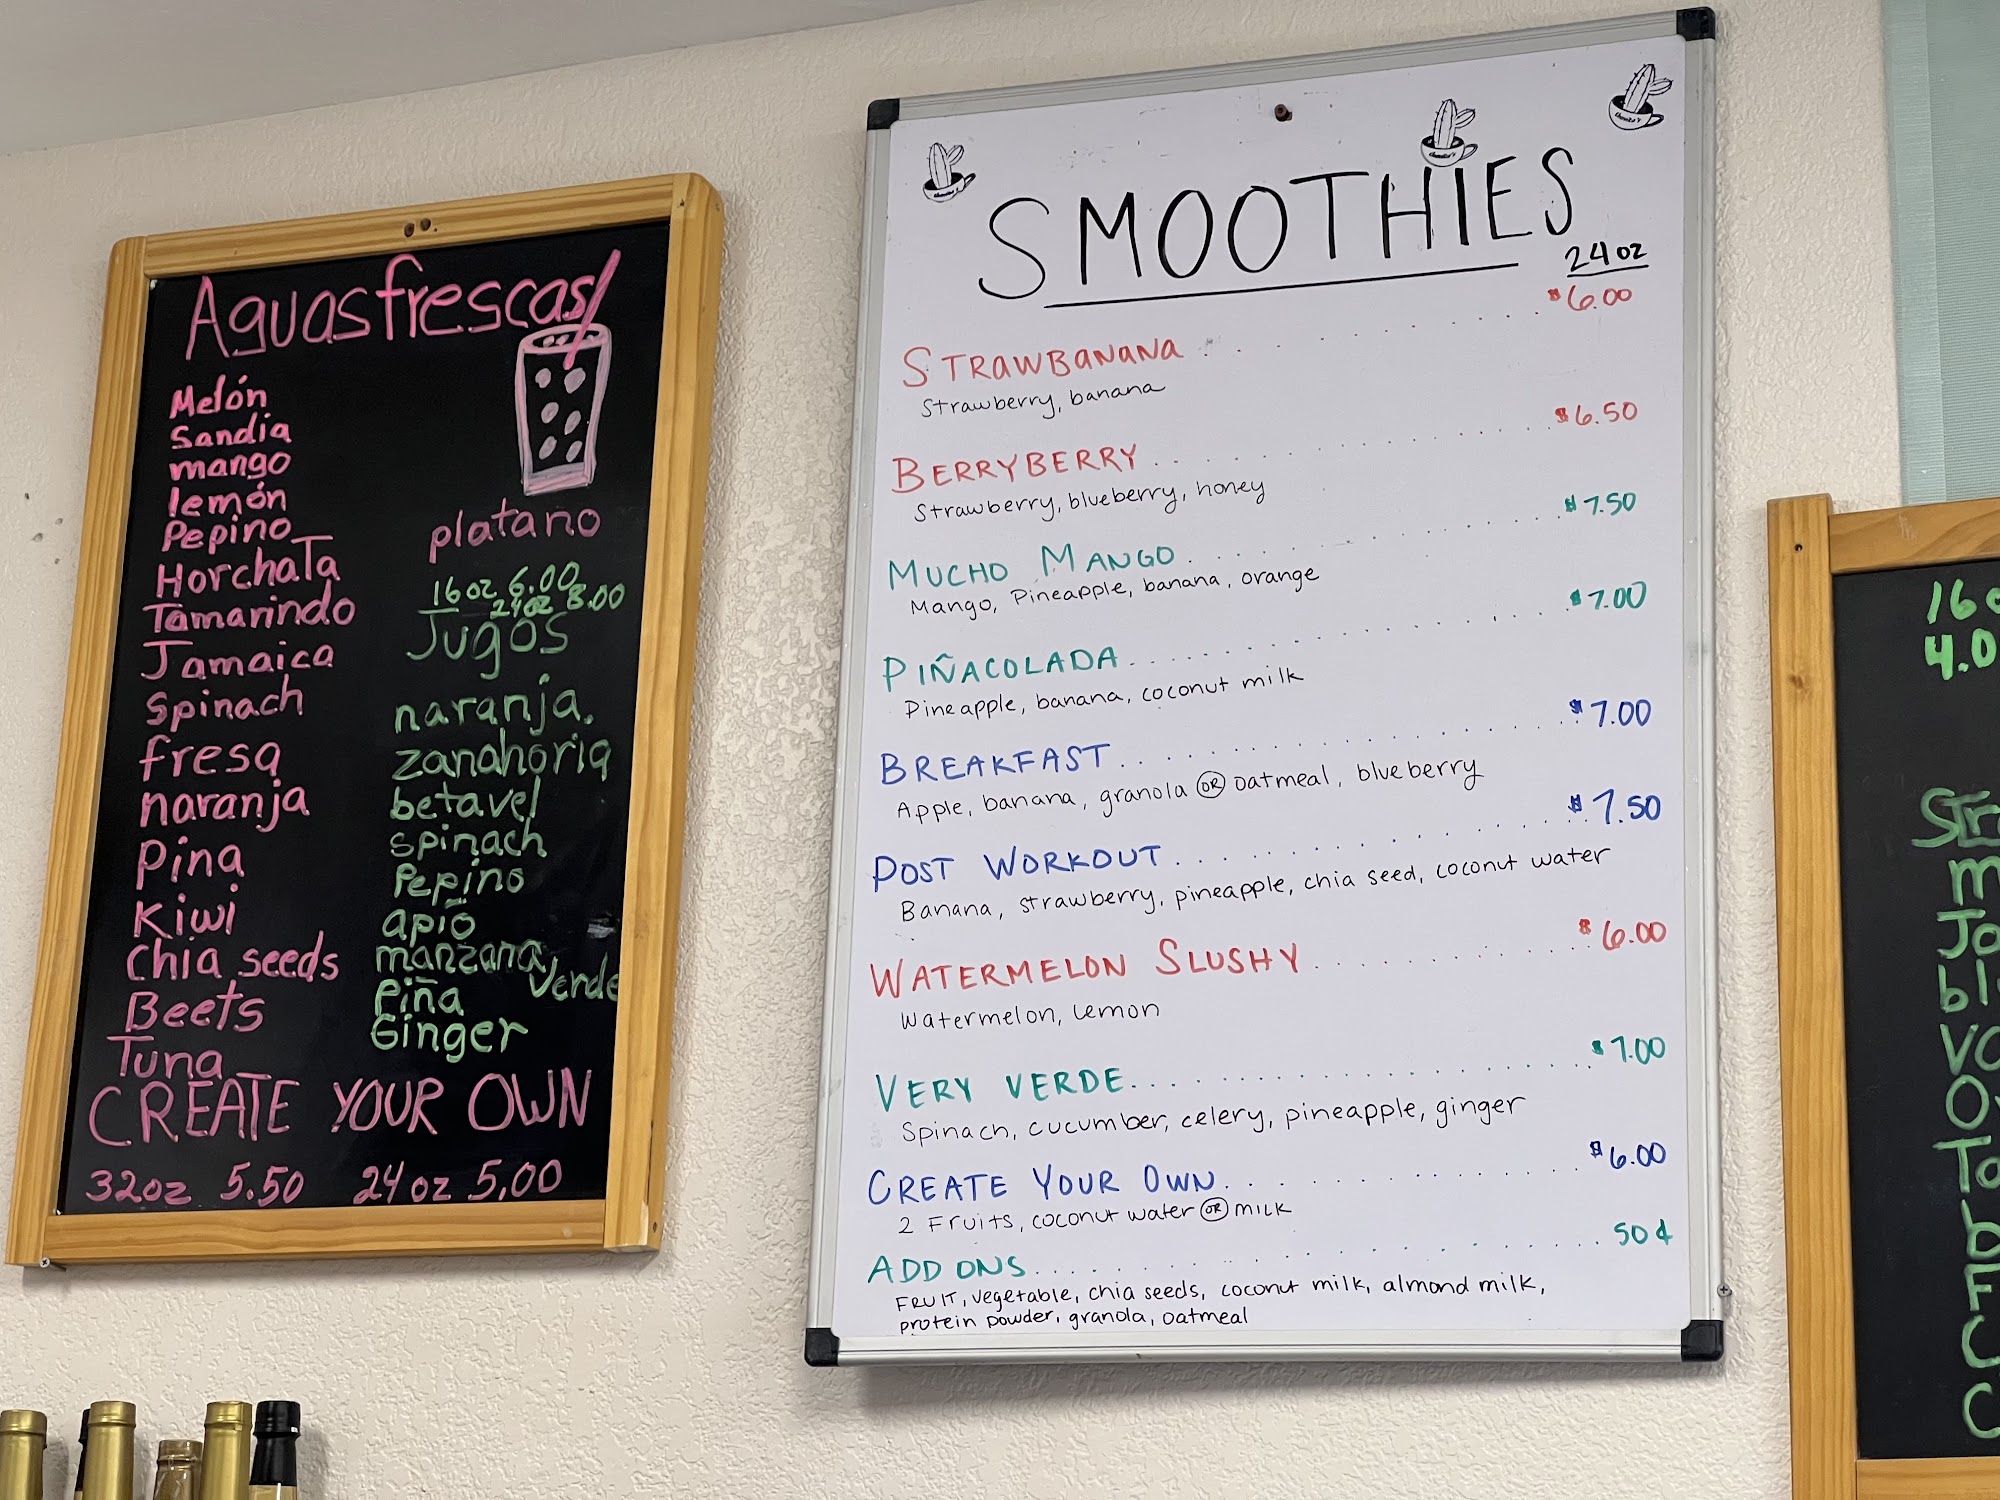 Aguas frescas
Melón
Sandia
mango
lemón
Pepino
Horchata
Tamarindo
Jamaica
Spinach
fresa
naranja
Pina
Kiwi
Chia seeds
Beets
Tuna
platano
16oz 6.00
24oz 8.00
Jugos
naranja.
zanahoria
betavel
spinach
Pepino
apio
manzana verde
Piña
Ginger
CREATE YOUR OWN
32oz 5.50 24oz 5.00
SMOOTHIES
24oz
STRAWBANANA . . . . . . . . . . $6.00
Strawberry, banana
BERRYBERRY . . . . . . . . . . $6.50
Strawberry, blueberry, honey
MUCHO MANGO . . . . . . . . . . $7.50
Mango, Pineapple, banana, orange
PIÑACOLADA . . . . . . . . . . $7.00
Pineapple, banana, coconut milk
BREAKFAST . . . . . . . . . . $7.00
Apple, banana, granola OR oatmeal, blueberry
POST WORKOUT . . . . . . . . . . $7.50
Banana, strawberry, pineapple, chia seed, coconut water
WATERMELON SLUSHY . . . . . . . . . . $6.00
Watermelon, Lemon
VERY VERDE . . . . . . . . . . $7.00
Spinach, cucumber, celery, pineapple, ginger
CREATE YOUR OWN . . . . . . . . . . $6.00
2 Fruits, coconut water OR milk
ADD ONS . . . . . . . . . . 50¢
FRUIT, vegetable, chia seeds, coconut milk, almond milk,
protein powder, granola, oatmeal
16
4.0